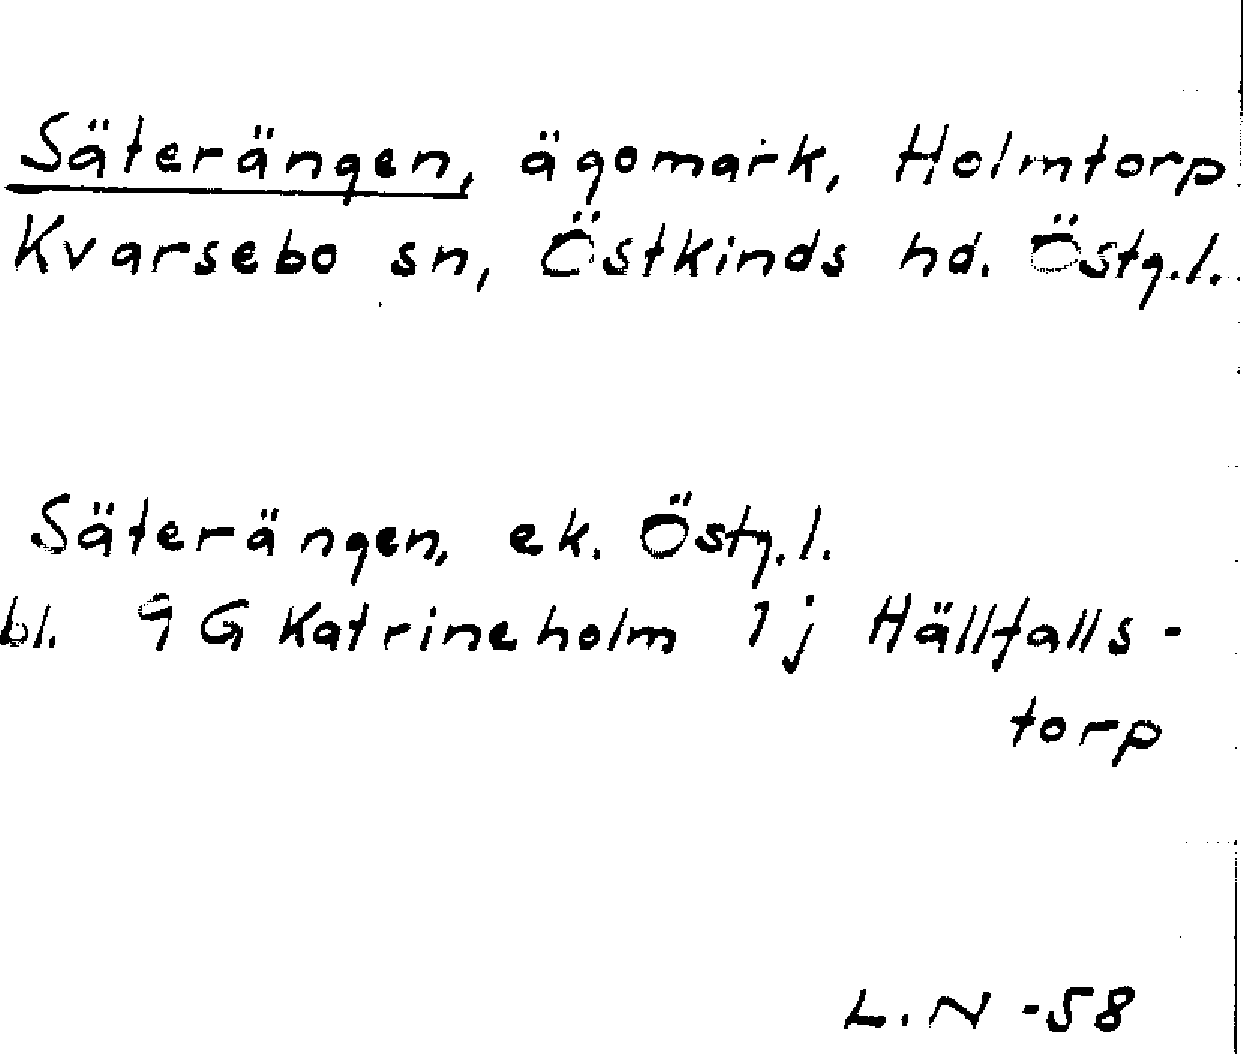 Säterängen, ägomark, Holmtorp
Kvarsebo sn, Östkinds hd. Östg.l.
Säterängen, ek. Östg.l.
bl. 9G Katrineholm 1j Hällfalls-
torp
L.N -58